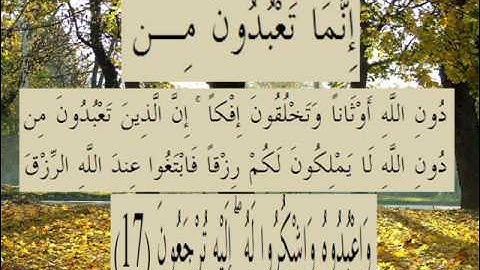 إِنَّمَا تَعْبُدُونَ مِـــن
دُونِ اللَّهِ أَوْثَاناً وَتَخْلُقُونَ إِفْكاً ۚ إِنَّ الَّذِينَ تَعْبُدُونَ مِن
دُونِ اللَّهِ لَا يَمْلِكُونَ لَكُمْ رِزْقاً فَابْتَغُوا عِندَ اللَّهِ الرِّزْقَ
وَاعْبُدُوهُ وَاشْكُرُوا لَهُ ۖ إِلَيْهِ تُرْجَعُونَ (17)